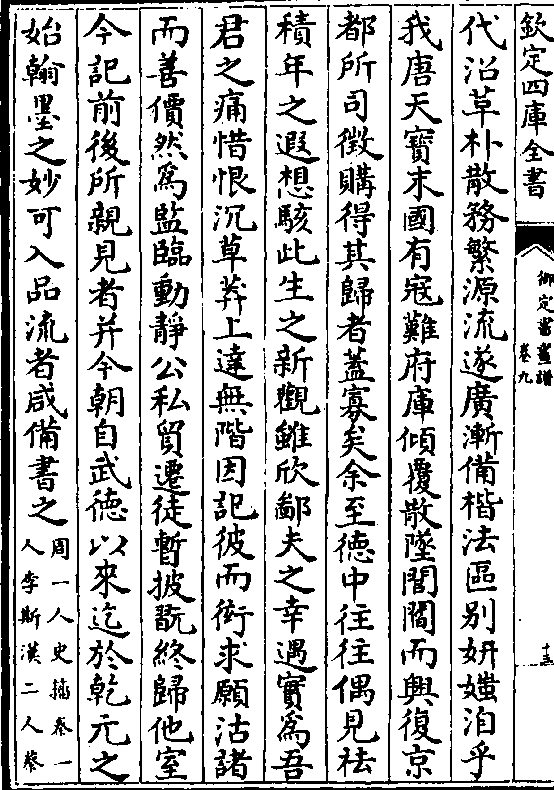 欽定四庫全書
御定書畫譜
卷九
十三
代沿草朴散務繁源流遂廣漸備楷法區别妍媸洎乎
我唐天寶末國有寇難府庫傾覆散墜閭閻而興復京
都所司徵購得其歸者蓋寡矣余至德中往往偶見祛
積年之遐想駭此生之新觀雖欣鄙夫之幸遇實為吾
君之痛惜恨沉草莽上達無階因記彼而衒求願沽諸
而善價然為監臨動靜公私貿遷徒暫披翫終歸他室
今記前後所親見者并今朝自武德以來迄於乾元之
始翰墨之妙可入品流者咸備書之
周一人史籀秦一
人李斯漢二人蔡